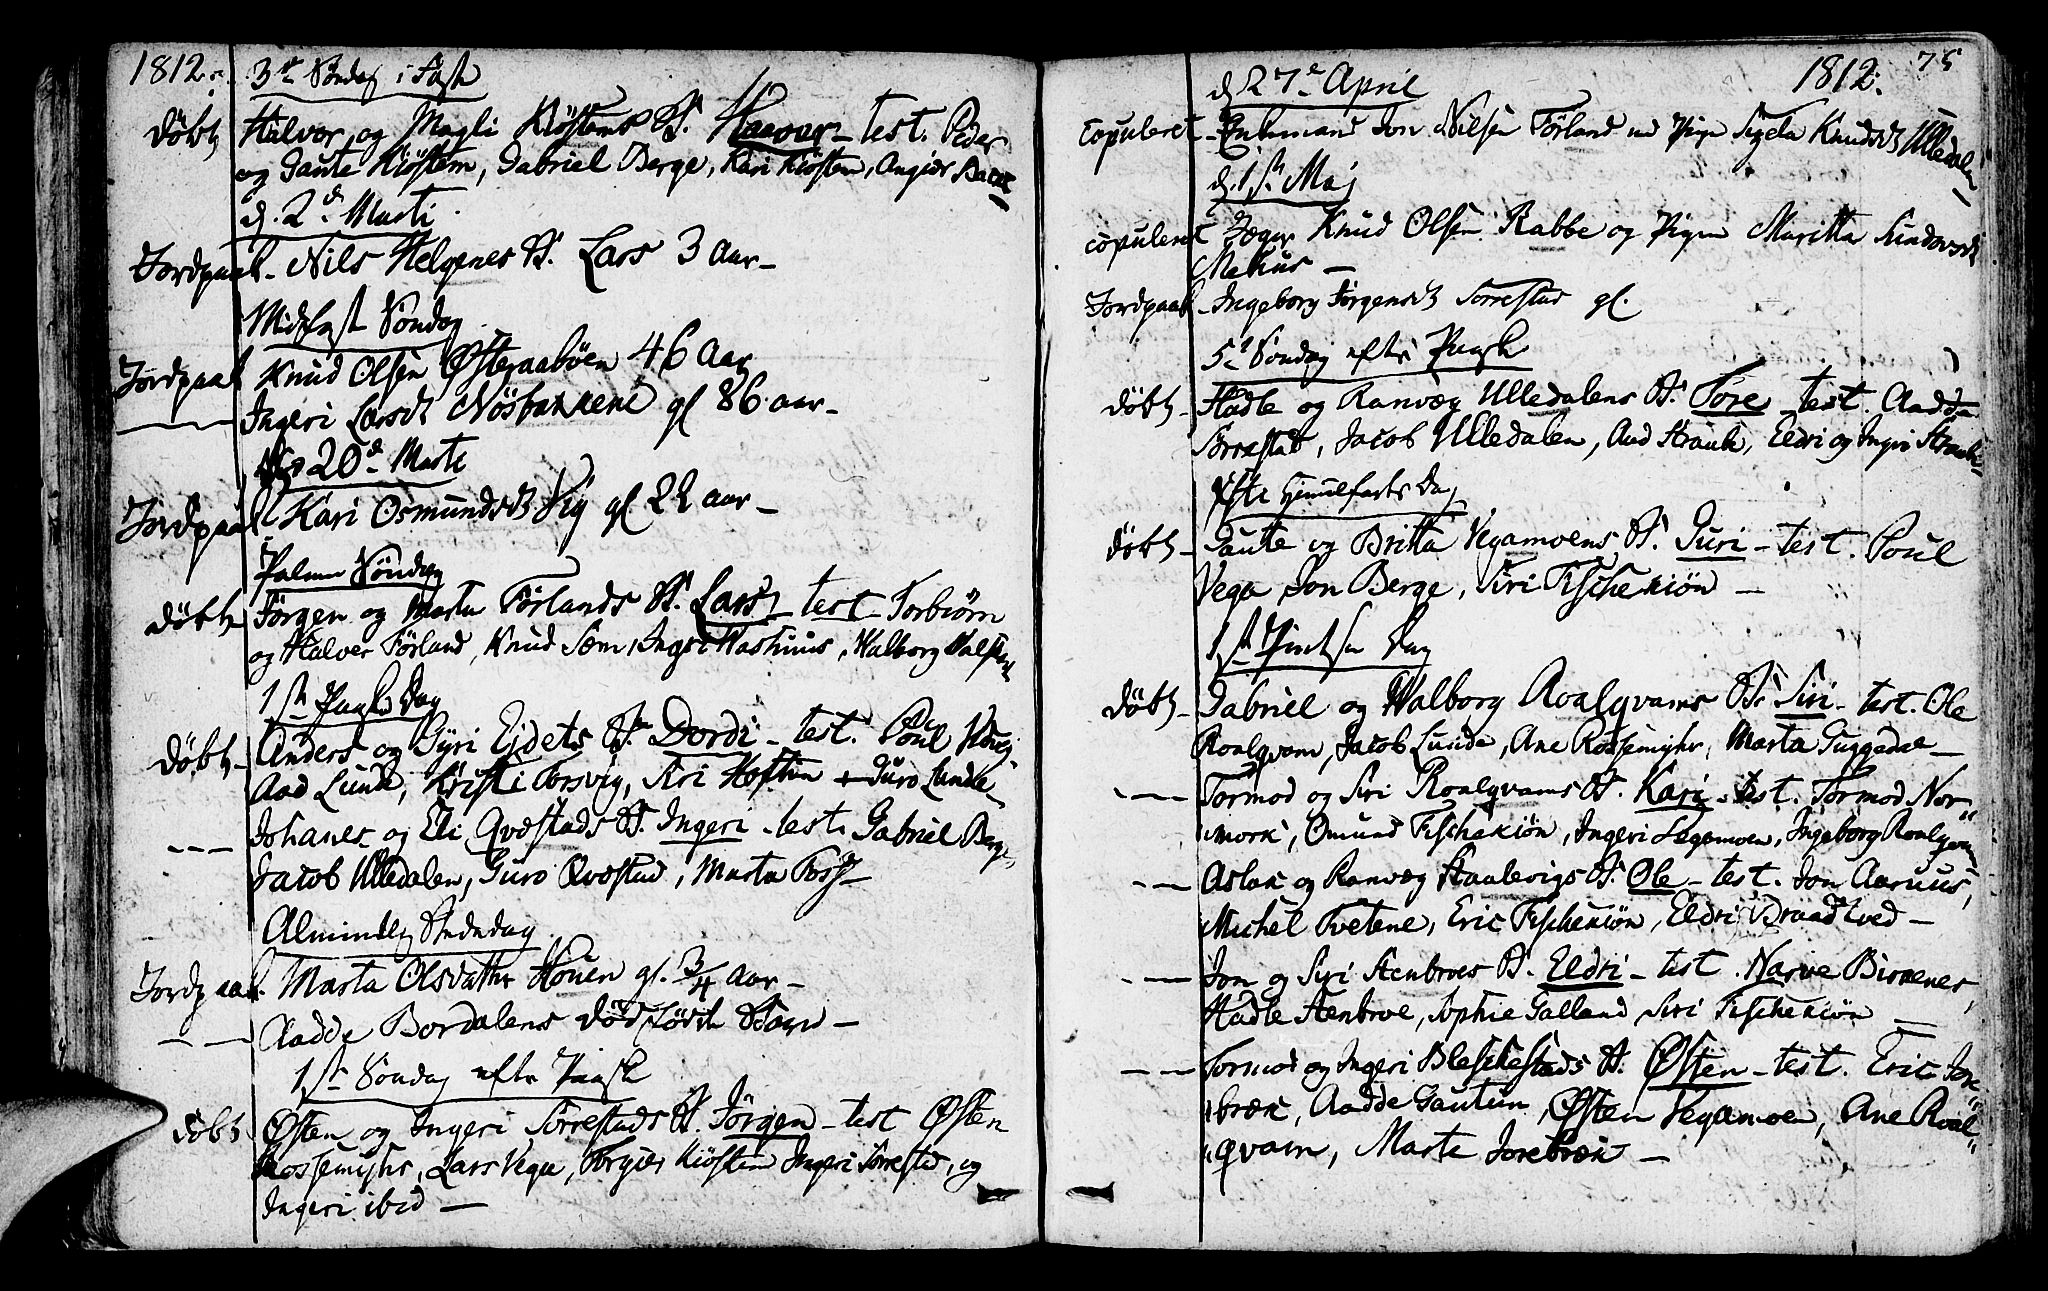 1812.
3die Søndag i Faste
døbt Halvor og Magli Kiøstems B. Haavar - test. Peder
og Gaute Kiøstem, Gabriel Berge, Kari Kiøstem, Angier
d. 2d Marti
Jordpaak. Nils Helgenes B. Lars 3 Aar -
Midfast Søndag
Jordpaak Knud Olsen Østeraabøen 46 Aar
Ingeri Larsdt Nøsbakkene gl 86 aar -
20d Marti
Jordpaak Kari Osmundsdt Vig gl 22 aar -
Palme Søndag
døbt Jørgen og Marta Førlands B. Lars - test Torbiørn
og Halver Førland, Knud Sæm, Ingeri, Valborg
1ste Paaske Dag
døbt - Anders og Gyri Eidets B. Dordi - test. Poul
Aad Lunde, Kristi Torsvig, Siri Guro Lunde
--- Johanes og Eli Qvæstads B. Ingeri - test. Gabriel Berge
Jacob Ulledalen, Guro Qvæstad, Marta
Almindelig Bededag
Jordpaak. Marta Olsdatter Houen gl. 3/4 Aar -
--- Aadde Bordalens død født Barn -
1ste Søndag efter Paaske
døbt Østen og Ingeri Sørrestads B. Jørgen - test Østen
Rossemyhr, Lars Vega, Torgier Kiøstem Ingeri Sørrestad, og
Ingeri ibid -
75
1812.
d. 27de April
Copuleret - Enkemand Jon Nilsen Førland med Pigen Knudsdt Ulledalen
d. 1ste Maj
copuleret Jæger Knud Olsen Rabbe og Pigen Maritta
Mehus -
Jordpaak - Ingeborg Jørgensdt Sørrestad gl.
5te Søndag efter Paaske
døbt - Hadle og Ranvæg Ulledalens B. Tore test. Aadda
Sørrestad, Jacob Ulledalen, Aud Straute, Eldri og Ingeri
Christi Himmelfarts Dag
døbt - Gaute og Britta Vegamoens B. Guri - test. Poul
Vega Jon Berge, Siri Fischekiøn -
1ste Pintse Dag
døbt - Gabriel og Walborg Roalqvams B. Siri - test. Ole
Roalqvam, Jacob Lunde, Ane Rossemyhr, Marta Guggedal -
--- Tormod og Siri Roalqvams B. Kari - test. Tormod Nor-
mork, Omund Fischekiøn, Ingeri Vegamoen, Ingeborg Roalqvam
--- Aslak og Ranvæg Staalevigs B. Ole - test. Jon Aarhuus,
Michel Tvetene, Eric Fischekiøn, Eldri Braadtved -
--- Jon og Siri Stenbroes B. Eldri - test. Narve Birkenes,
Hadle Stenbroe, Sophie Galland, Siri Fischekiøn -
--- Tormod og Ingeri Bleschestads B. Østen - test. Eric Jore-
bræk, Aadde Gautun, Østen Vegamoen, Ane Roal-
qvam, Marte Jorebræk -